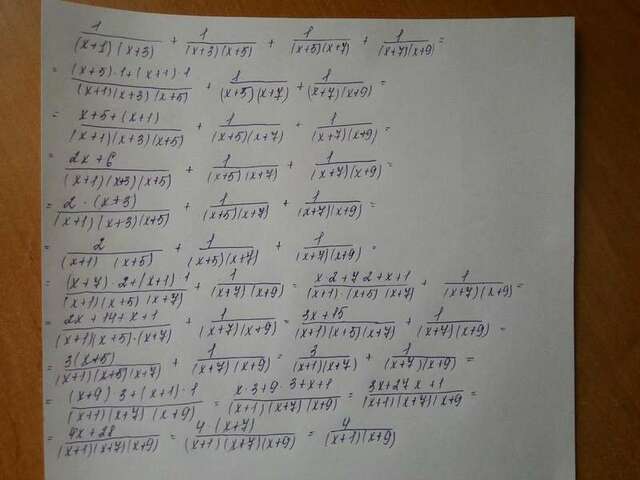 1/((x+1)(x+3)) + 1/((x+3)(x+5)) + 1/((x+5)(x+7)) + 1/((x+7)(x+9)) =
= ((x+5)·1+(x+1)·1)/((x+1)(x+3)(x+5)) + 1/((x+5)(x+7)) + 1/((x+7)(x+9)) =
= (x+5+(x+1))/((x+1)(x+3)(x+5)) + 1/((x+5)(x+7)) + 1/((x+7)(x+9)) =
= (2x+6)/((x+1)(x+3)(x+5)) + 1/((x+5)(x+7)) + 1/((x+7)(x+9)) =
= (2·(x+3))/((x+1)(x+3)(x+5)) + 1/((x+5)(x+7)) + 1/((x+7)(x+9)) =
= 2/((x+1)(x+5)) + 1/((x+5)(x+7)) + 1/((x+7)(x+9)) =
= ((x+7)·2+(x+1)·1)/((x+1)(x+5)(x+7)) + 1/((x+7)(x+9)) = (x·2+7·2+x+1)/((x+1)·(x+5)(x+7)) + 1/((x+7)(x+9)) =
= (2x+14+x+1)/((x+1)(x+5)·(x+7)) + 1/((x+7)(x+9)) = (3x+15)/((x+1)(x+5)(x+7)) + 1/((x+7)(x+9)) =
= (3(x+5))/((x+1)(x+5)(x+7)) + 1/((x+7)(x+9)) = 3/((x+1)(x+7)) + 1/((x+7)(x+9)) =
= ((x+9)·3+(x+1)·1)/((x+1)(x+7)(x+9)) = (x·3+9·3+x+1)/((x+1)(x+7)(x+9)) = (3x+27x+1)/((x+1)(x+7)(x+9) =
= (4x+28)/((x+1)(x+7)(x+9)) = (4·(x+7))/((x+1)(x+7)(x+9)) = 4/((x+1)(x+9))